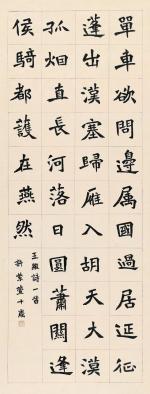 單車欲問邊属國過居延征
蓬出漢塞歸雁入胡天大漠
孤烟直長河落日圓蕭關逢
侯騎都護在燕然
王維詩一首
十歲